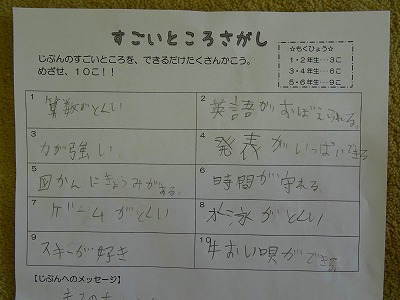 すごいところさがし
じぶんのすごいところを、できるだけたくさんかこう。
めざせ、10こ！！
☆もくひょう☆
1・2年生…3こ
3・4年生…6こ
5・6年生…9こ
1 算数がとくい
2 英語がおぼえられる。
3 力が強い
4 発表がいっぱいできる
5 図かんにきょうみがある。
6 時間が守れる。
7 ゲームがとくい
8 水泳がとくい
9 スキーが好き
10 牛おい唄ができる
【じぶんへのメッセージ】